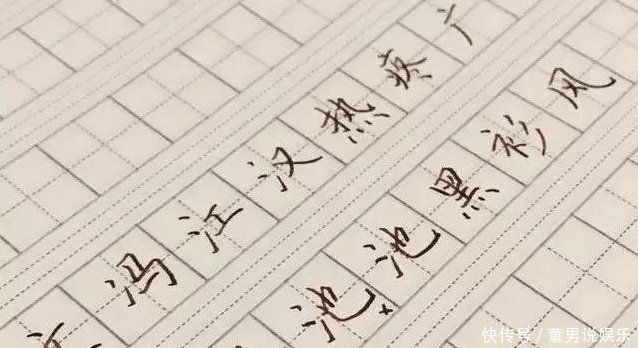 冯江汉热疼广
池池黑衫风
快传号 / 董男说娱乐